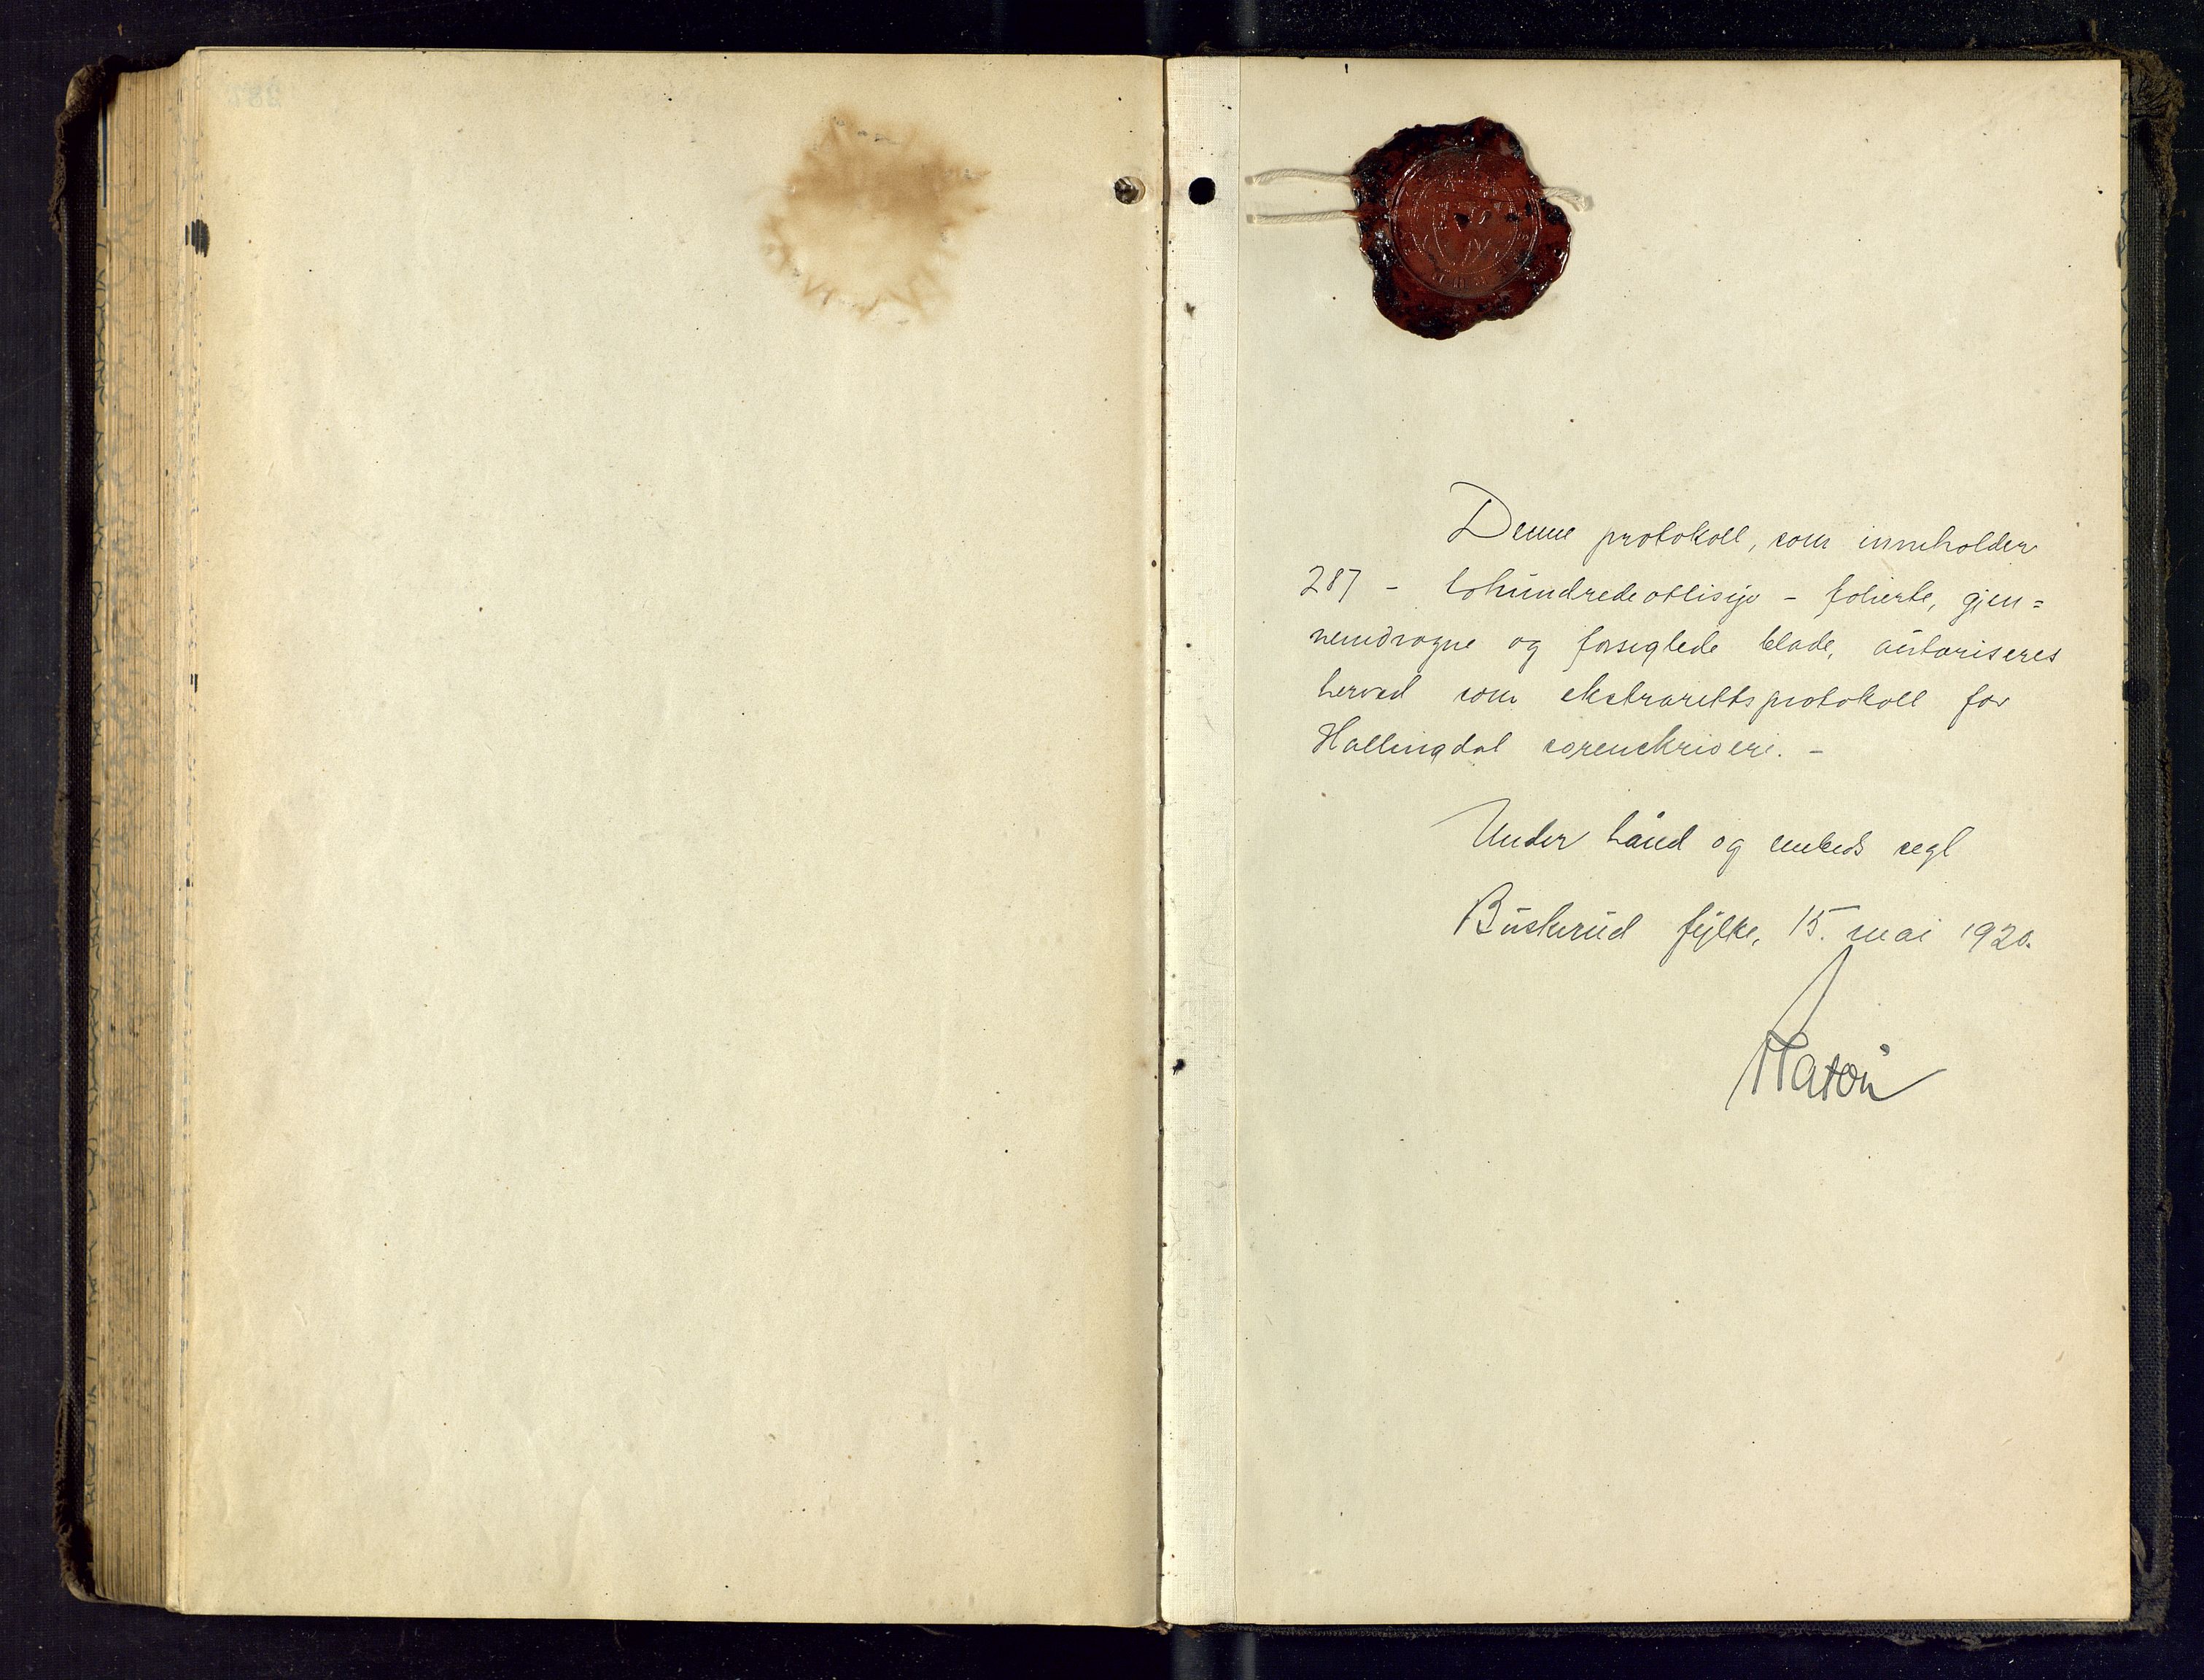 Denne protokoll, som inneholder
287 - tohundredeottisyv - folierte, gjen=
nemdragne og forseglede blade, autoriseres
herved som ekstrarettsprotokoll for
Hallingdal sorenskriveri. -
Under hånd og embeds segl
Buskerud fylke, 15. mai 1920.